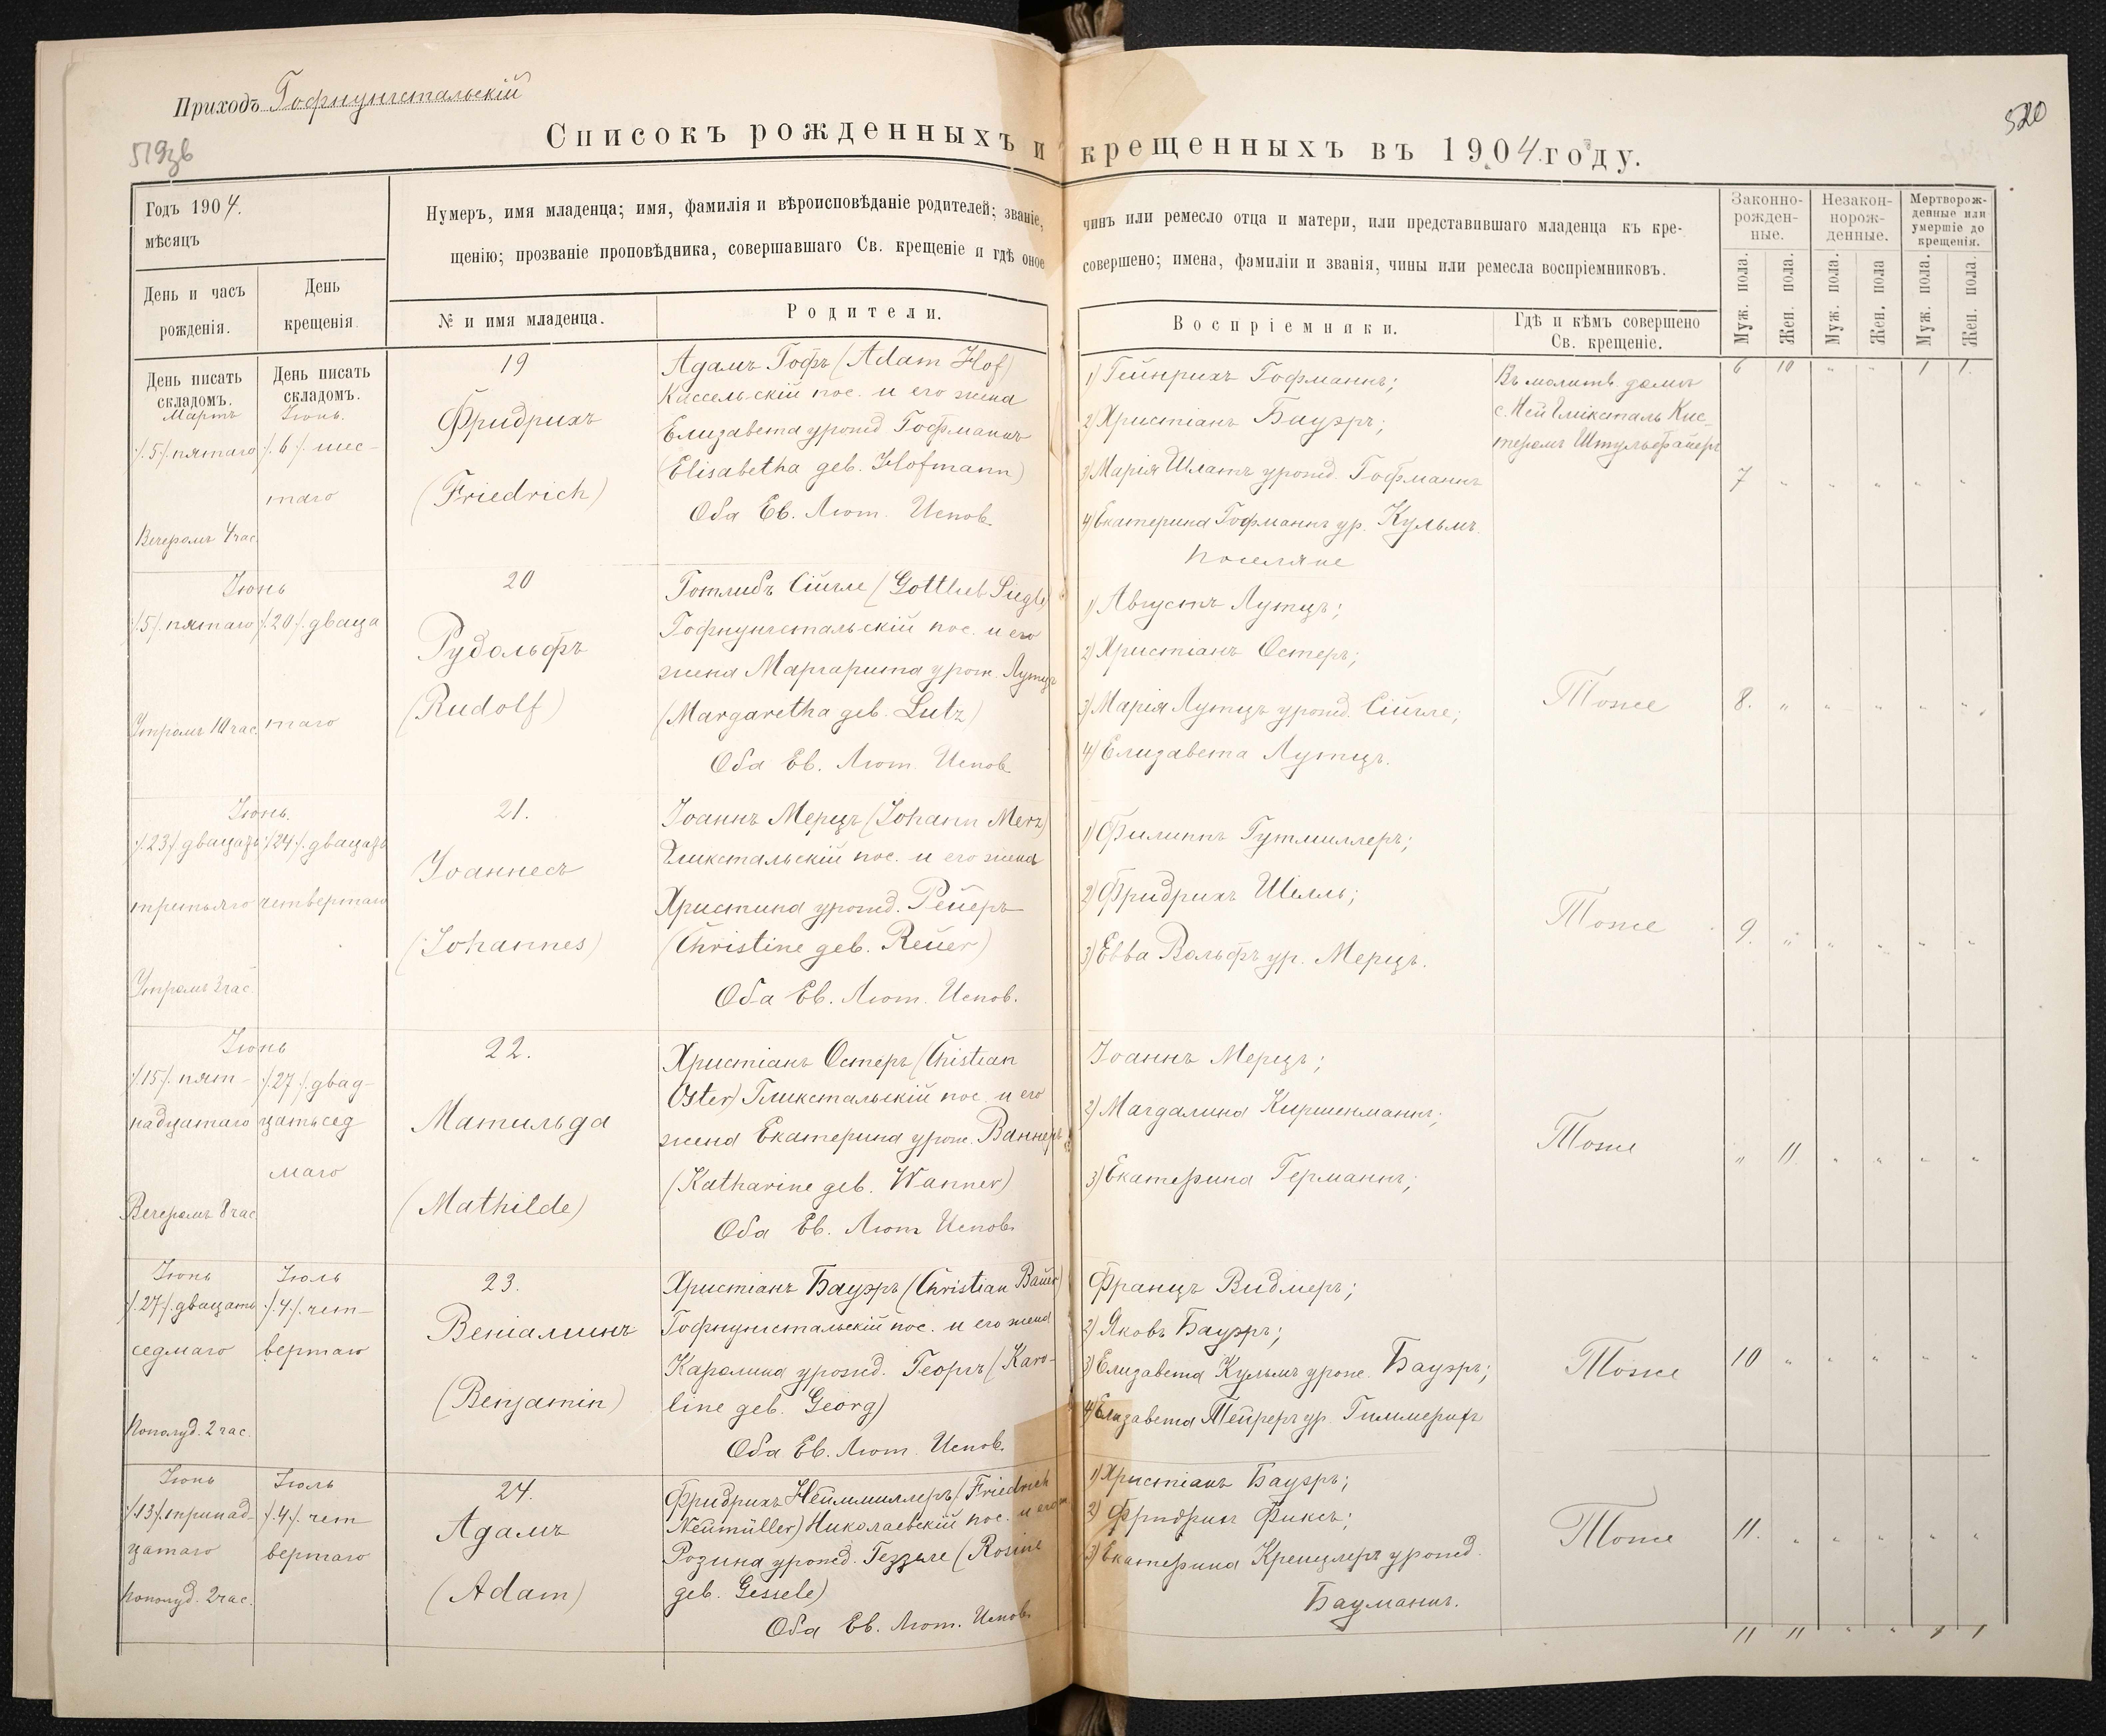 Приходъ Гофнунгстальскій
519зв
520
Списокъ рожденныхъ и крещенныхъ въ 1904 году.
Годъ 1904.
мѣсяцъ
День и часъ рожденія.
День крещенія.
Нумеръ, имя младенца; имя, фамилія и вѣроисповѣданіе родителей; званіе, чинъ или ремесло отца и матери, или представившаго младенца къ кре-
щенію; прозваніе проповѣдника, совершавшаго Св. крещеніе и гдѣ оное совершено; имена, фамиліи и званія, чины или ремесла воспріемниковъ.
№ и имя младенца.
Родители.
Воспріемники.
Гдѣ и кѣмъ совершено
Св. крещеніе.
Законно-
рожден-
ные.
Незакон-
норож-
денные.
Мертворож-
денные или
умершіе до
крещенія.
Муж. пола.
Жен. пола.
Муж. пола.
Жен. пола
Муж. пола.
Жен. пола.
6 10 " " 1 1.
День писать
складомъ.
Мартъ
./.5./. пятаго
Вечеромъ 4 час.
День писать
складомъ.
Іюнь.
./.6./. шес-
таго
19
Фридрихъ
(Friedrich)
Адамъ Гофъ (Adam Hof)
Кассельскій пос. и его жена
Елизавета урожд. Гофманнъ
(Elisabetha geb. Hofmann)
Оба Ев. Лют. Испов.
1) Гейнрихъ Гофманнъ;
2) Христіанъ Бауэръ;
3) Марія Шлатъ урожд. Гофманнъ
4) Екатерина Гофманнъ ур. Кульмъ.
Поселяне
Въ молитв. домѣ
с. Ней Гліксталь Кис-
теромъ
7 " " " " "
Іюнь
./.5./. пятаго
Утромъ 10 час.
./.20./. дваца
таго
20
Рудольфъ
(Rudolf)
Готлибъ Сійгле (Gottlieb Siegle)
Гофнунгстальскій пос. и его
жена Маргарита урож. Лутцъ
(Margaretha geb. Lutz)
Оба Ев. Лют. Испов
1) Августъ Лутцъ;
2) Христіанъ Остеръ;
3) Марія Лутцъ урожд. Сійгле;
4) Елизавета Лутцъ.
Тоже
8. " " " " "
Іюнь.
./.23./. двацать
третьяго
Утромъ 2 час.
./.24./. двацать
четвертаго
21.
Іоаннесъ
(Johannes)
Іоаннъ Мерцъ (Johann Merz)
Гликстальскій пос. и его жена
Христина урожд. Рейеръ
(Christine geb. Reuer)
Оба Ев. Лют. Испов.
1) Филиппъ Гутмиллеръ;
2) Фридрихъ Шелль;
3) Евва Вольфъ ур. Мерцъ.
Тоже
9. " " " " "
Іюнь
./.15./. пят-
надцатаго
Вечеромъ 8 час
./.27./. двад-
цатьсед
маго
22.
Матильда
(Mathilde)
Христіанъ Остеръ (Christian
Oster) Гликстальскій пос. и его
жена Екатерина урож. Ваннеръ
(Katharine geb. Wanner)
Оба Ев. Лют Испов.
Іоаннъ Мерцъ;
2) Магдалина Киршенманнъ;
3) Екатерина Германнъ;
Тоже
" 11 " " " "
Іюнь
./.27./. двацать
седмаго
Пополуд. 2 час.
Іюль
./.4./. чет-
вертаго
23.
Веніаминъ
(Benjamin)
Христіанъ Бауэръ (Christian Bauer)
Гофнунгстальскій пос. и его жена
Каролина урожд. Георгъ (Karo-
line geb. Georg)
Оба Ев. Лют. Испов.
Францъ Видмеръ;
2) Яковъ Бауэръ;
3) Елизавета Кульмъ урож. Бауэръ;
4) Елизавета ур.
Тоже
10 " " " " "
Іюнь
./.13./. тринад-
цатаго
Пополуд. 2 час.
Іюль
./.4./. чет
вертаго
24.
Адамъ
(Adam)
Фридрихъ Неймиллеръ (Friedrich
Neumüller) Николаевскій пос. и его ж
Розина урожд. Геззеле (Rosine
geb. Gessele)
Оба Ев. Лют. Испов.
1) Христіанъ Бауэръ;
2) Фридрих Фиксъ;
3) Екатерина Кренцлеръ урожд.
Бауманнъ.
Тоже
11. " " " " "
11 11 " " 1 1